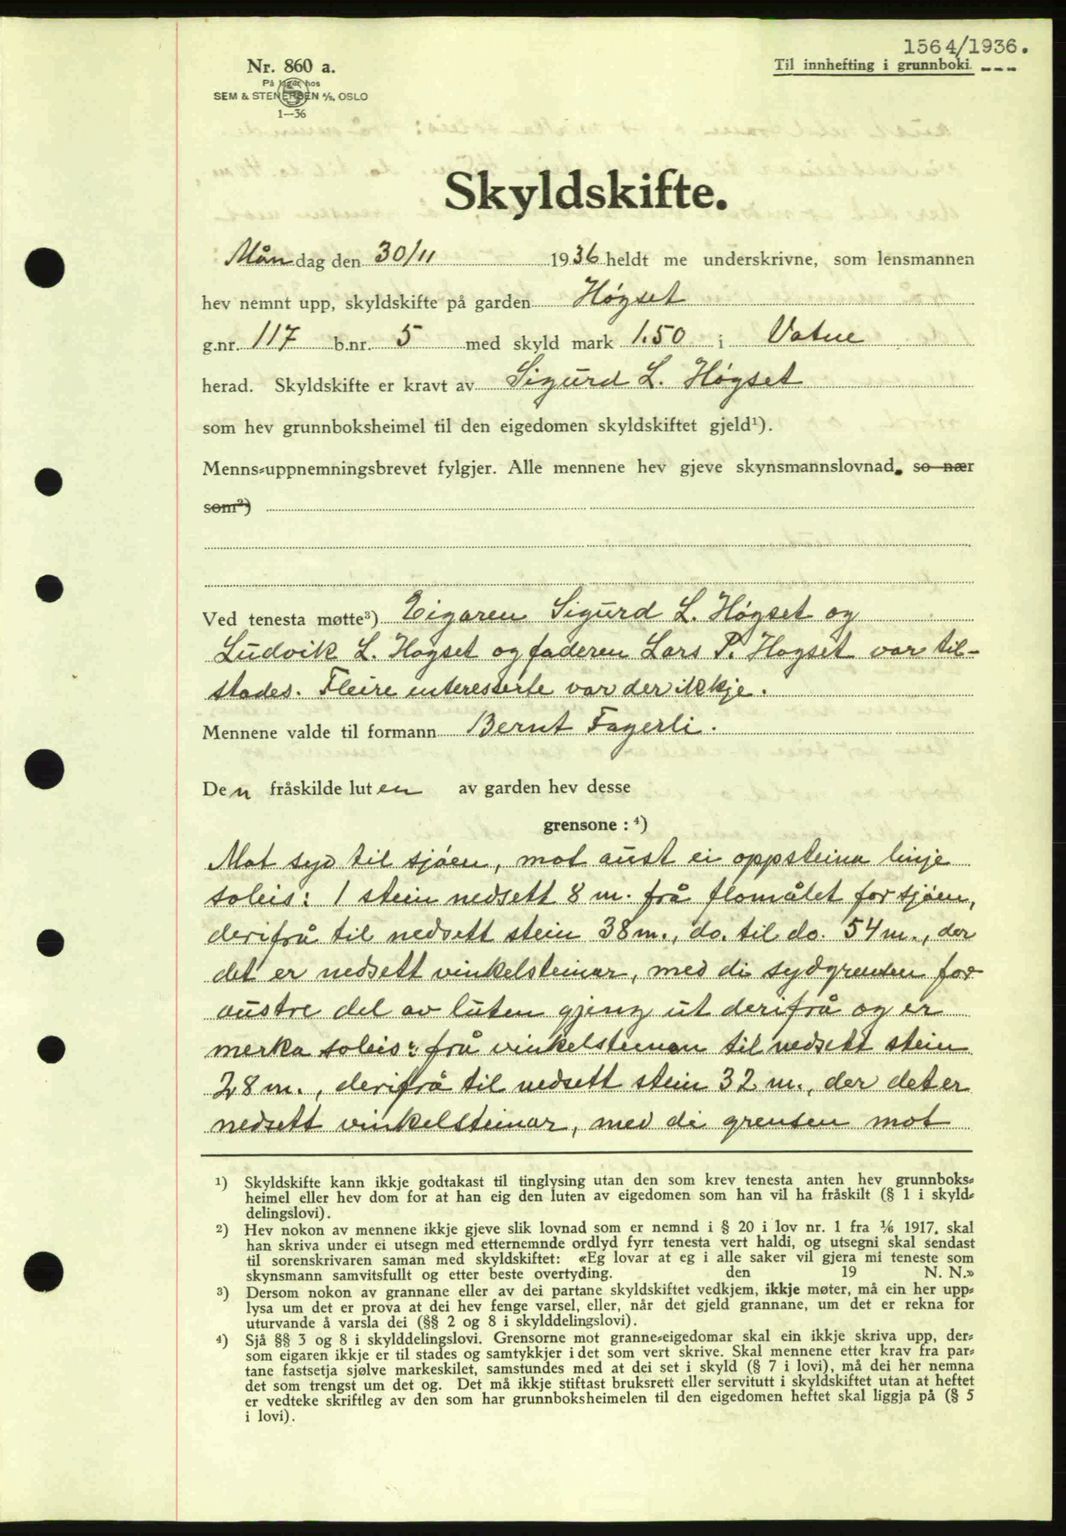 1564/1936.
Til innhefting i grunnboki
Nr. 860 a.
På lager hos
SEM & STENERSEN A/S, OSLO
1—36
Skyldskifte.
Måndag den 30/11 1936 heldt me underskrivne, som lensmannen
hev nemnt upp, skyldskifte på garden Høgset
g.nr. 117 b.nr. 5 med skyld mark 1.50 i Vatne
herad. Skyldskifte er kravt av Sigurd L. Høgset
som hev grunnboksheimel til den eigedomen skyldskiftet gjeld¹).
Menns-uppnemningsbrevet fylgjer. Alle mennene hev gjeve skynsmannslovnad. so nær
som²)
Ved tenesta møtte³) Eigaren Sigurd L. Høgset og
Ludvik L. Hogset og faderen Lars P. Hogset var til-
stades. Fleire interesserte var der ikkje.
Mennene valde til formann Bernt Fagerli.
Den fråskilde luten av garden hev desse
grensone : ⁴)
Mot syd til sjøen, mot aust ei oppsteina linje
soleis: 1 stein nedsett 8 m. frå flomålet for sjøen,
derifrå til nedsett stein 38 m., do. til do. 54 m., der
det er nedsett vinkelsteinar, med di sydgrensen for
austre del av luten gjeng ut derifrå og er
merka soleis: frå vinkelsteinen til nedsett stein
28 m., derifrå til nedsett stein 32 m., der det er
nedsett vinkelsteinar, med di grensen mot
¹) Skyldskifte kann ikkje godtakast til tinglysing utan den som krev tenesta anten hev grunnboks-
heimel eller hev dom for at han eig den luten av eigedomen som han vil ha fråskilt (§ 1 i skyld-
delingslovi).
²) Hev nokon av mennene ikkje gjeve slik lovnad som er nemnd i § 20 i lov nr. 1 fra ¹/₆ 1917, skal
han skriva under ei utsegn med etternemnde ordlyd fyrr tenesta vert haldi, og utsegni skal sendast
til sorenskrivaren saman med skyldskiftet: «Eg lovar at eg i alle saker vil gjera mi teneste som
skynsmann samvitsfullt og etter beste overtyding. den 19 N. N.»
³) Dersom nokon av grannane eller av dei partane skyldskiftet vedkjem, ikkje møter, må ein her upp-
lysa um det er prova at dei hev fenge varsel, eller, når det gjeld grannane, um det er rekna for
uturvande å varsla dei (§§ 2 og 8 i skylddelingslovi).
⁴) Sjå §§ 3 og 8 i skylddelingslovi. Grensorne mot granne-eigedomar skal ein ikkje skriva upp, der-
som eigaren ikkje er til stades og samtykkjer i det som vert skrive. Skal mennene etter krav fra par-
tane fastsetja sjølve markeskilet, samstundes med at dei set i skyld (§ 7 i lovi), må dei her nemna
det som trengst um det og. Det må ikkje stiftast bruksrett eller servitutt i skyldskiftet utan at heftet
er vedteke skriftleg av den som har grunnboksheimelen til den eigedomen heftet skal liggja på (§ 5
i lovi).